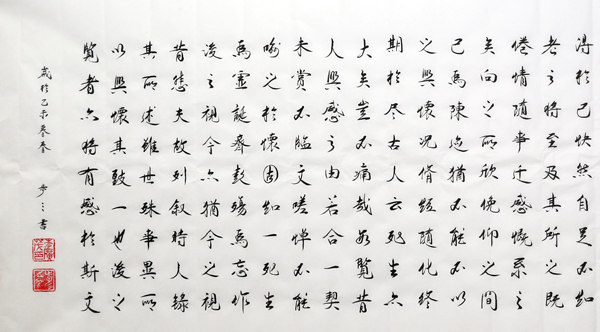 得於己快然自足不知
老之將至及其所之既
倦情隨事迁感慨系之
矣向之所欣俛仰之間
已為陳迹猶不能不以
之興懷況脩短隨化終
期於尽古人云死生亦
大矣豈不痛哉每覽昔
人興感之由若合一契
未嘗不臨文嗟悼不能
喻之於懷固知一死生
為虛誕齊彭殤為妄作
後之視今亦猶今之視
昔悲夫故列敘時人錄
其所述雖世殊事異所
以興懷其致一也後之
覽者亦將有感於斯文
歲於己未
書